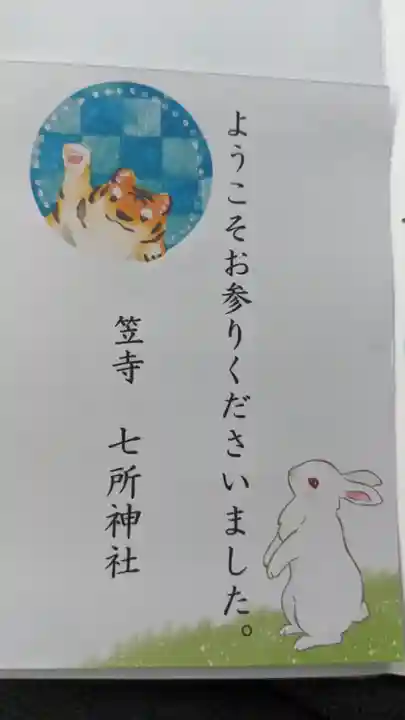 ようこそお参りくださいました。
笠寺　七所神社